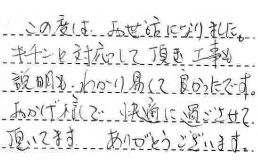 この度は、お世話になりました。
キチンと対応して頂き 工事も
説明も わかり易くて 良かったです。
おかげ様で 快適に過ごさせて
頂いてます ありがとうございます。